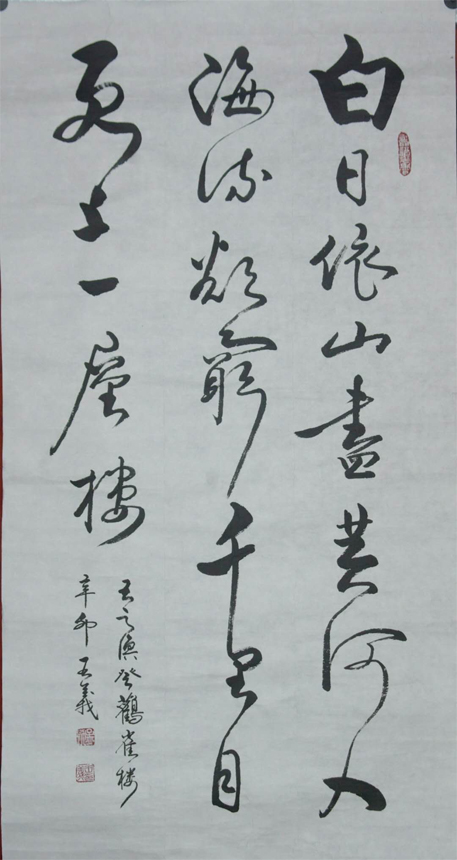 白日依山盡黄河入
海流欲窮千里目
更上一層樓
王之渙登鸛雀樓
辛卯王義